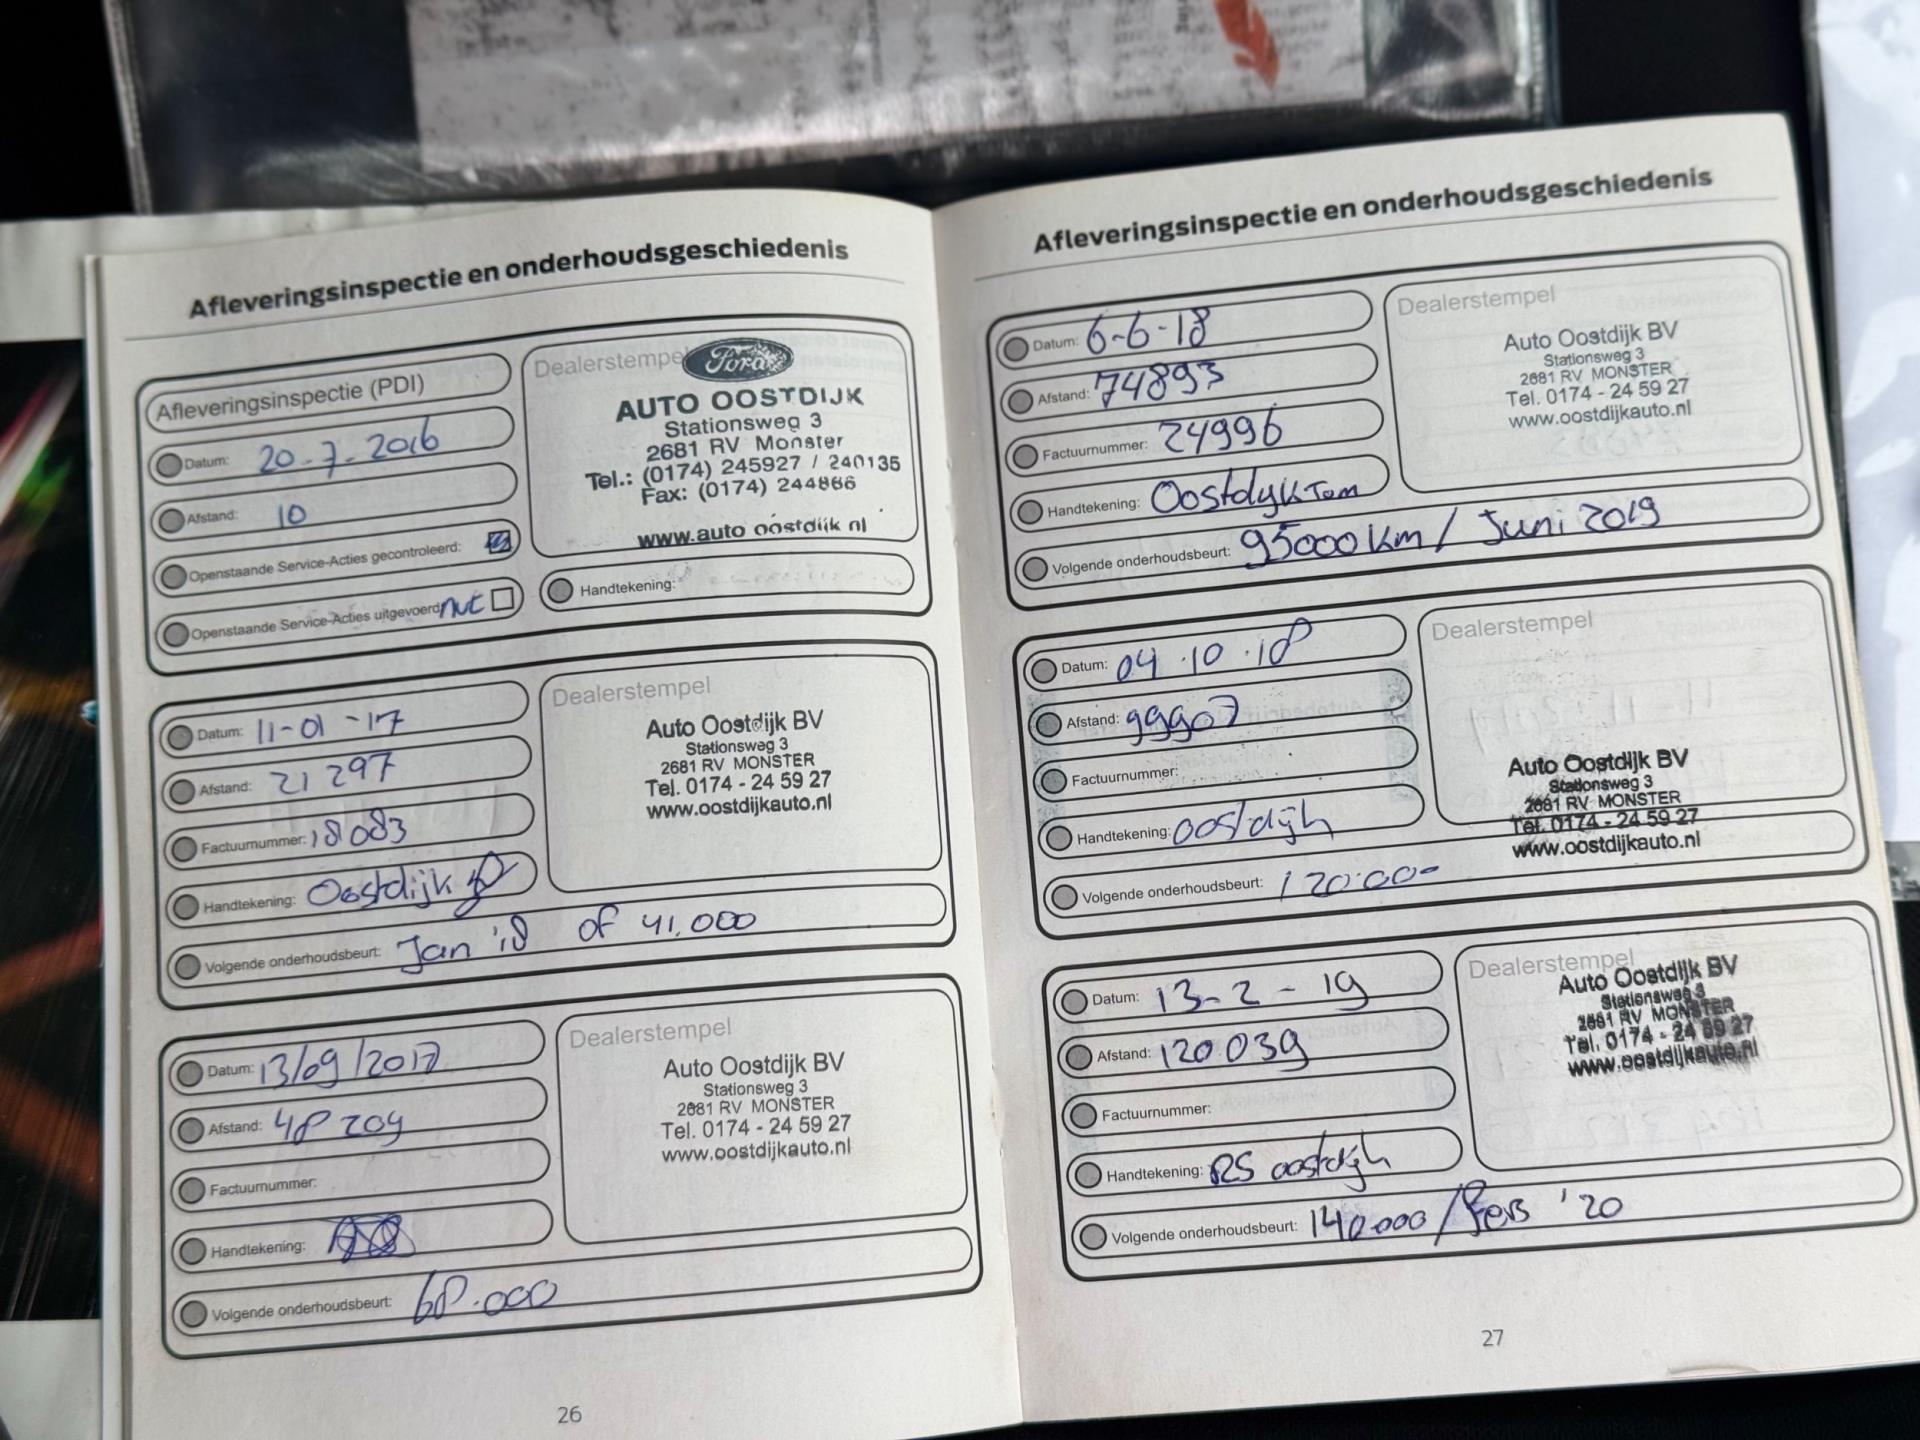 Afleveringsinspectie en onderhoudsgeschiedenis
Afleveringsinspectie (PDI)
Datum: 20-7-2016
Afstand: 10
Openstaande Service-Acties gecontroleerd:
Openstaande Service-Acties uitgevoerd: nvt
Dealerstempel
Ford
AUTO OOSTDIJK
Stationsweg 3
2681 RV Monster
Tel.: (0174) 245927 / 240135
Fax: (0174) 244866
www.auto oostdijk nl
Handtekening:
Datum: 11-01-17
Afstand: 21297
Factuurnummer: 18083
Handtekening: Oostdijk
Volgende onderhoudsbeurt: Jan '18 of 41.000
Dealerstempel
Auto Oostdijk BV
Stationsweg 3
2681 RV MONSTER
Tel. 0174 - 24 59 27
www.oostdijkauto.nl
Datum: 13/09/2017
Afstand: 48209
Factuurnummer:
Handtekening:
Volgende onderhoudsbeurt: 68.000
Dealerstempel
Auto Oostdijk BV
Stationsweg 3
2681 RV MONSTER
Tel. 0174 - 24 59 27
www.oostdijkauto.nl
26
Afleveringsinspectie en onderhoudsgeschiedenis
Datum: 6-6-18
Afstand: 74893
Factuurnummer: 24996
Handtekening: Oostdyk Tom
Volgende onderhoudsbeurt: 95000 km / Juni 2019
Dealerstempel
Auto Oostdijk BV
Stationsweg 3
2681 RV MONSTER
Tel. 0174 - 24 59 27
www.oostdijkauto.nl
Datum: 04.10.18
Afstand: 99907
Factuurnummer:
Handtekening: oostdijk
Volgende onderhoudsbeurt: 120.000
Dealerstempel
Auto Oostdijk BV
Stationsweg 3
2681 RV MONSTER
Tel. 0174 - 24 59 27
www.oostdijkauto.nl
Datum: 13-2-19
Afstand: 120039
Factuurnummer:
Handtekening: RS oostdijk
Volgende onderhoudsbeurt: 140.000 / Feb '20
Dealerstempel
Auto Oostdijk BV
Stationsweg 3
2681 RV MONSTER
Tel. 0174 - 24 59 27
www.oostdijkauto.nl
27